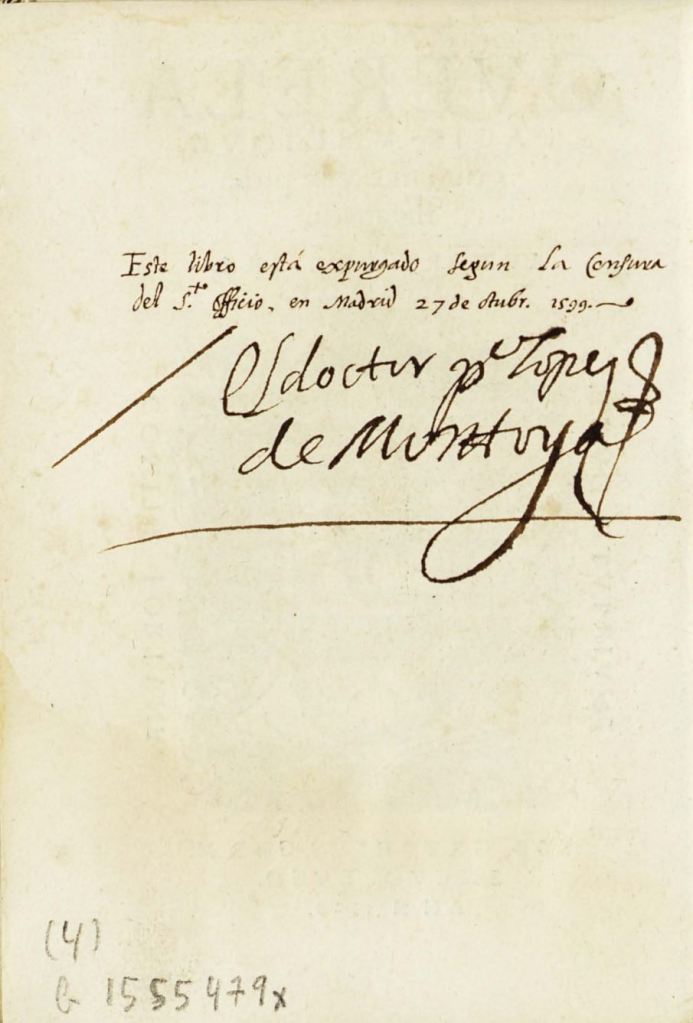 Este libro está expurgado segun la Censura
del S.to Officio, en Madrid 27 de otubr. 1599.
El doctor po Lopez
de Montoya
(4)
b 1555479x